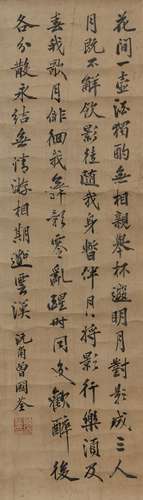 花間一壺酒獨酌無相親舉杯邀明月對影成三人
月既不解飲影徒隨我身暫伴月將影行樂須及
春我歌月徘徊我舞影零亂醒時同交歡醉後
各分散永結無情遊相期邈雲漢 沅甫曾國荃